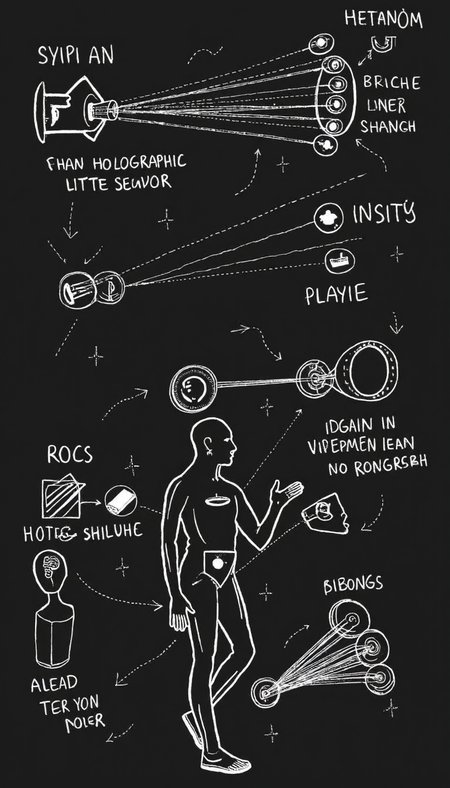 HETANÒM
SYIPI AN
BRICHE
LINER
SHANGH
FHAN HOLOGRAPHIC
LITTE SEUVOR
INSITY
PLAYIE
IDGAIN IN
VIPEPMEN IEAN
NO RONGRSBH
ROCS
HOTEG SHILUHE
BIBONGS
ALEAD
TER YON
POLER